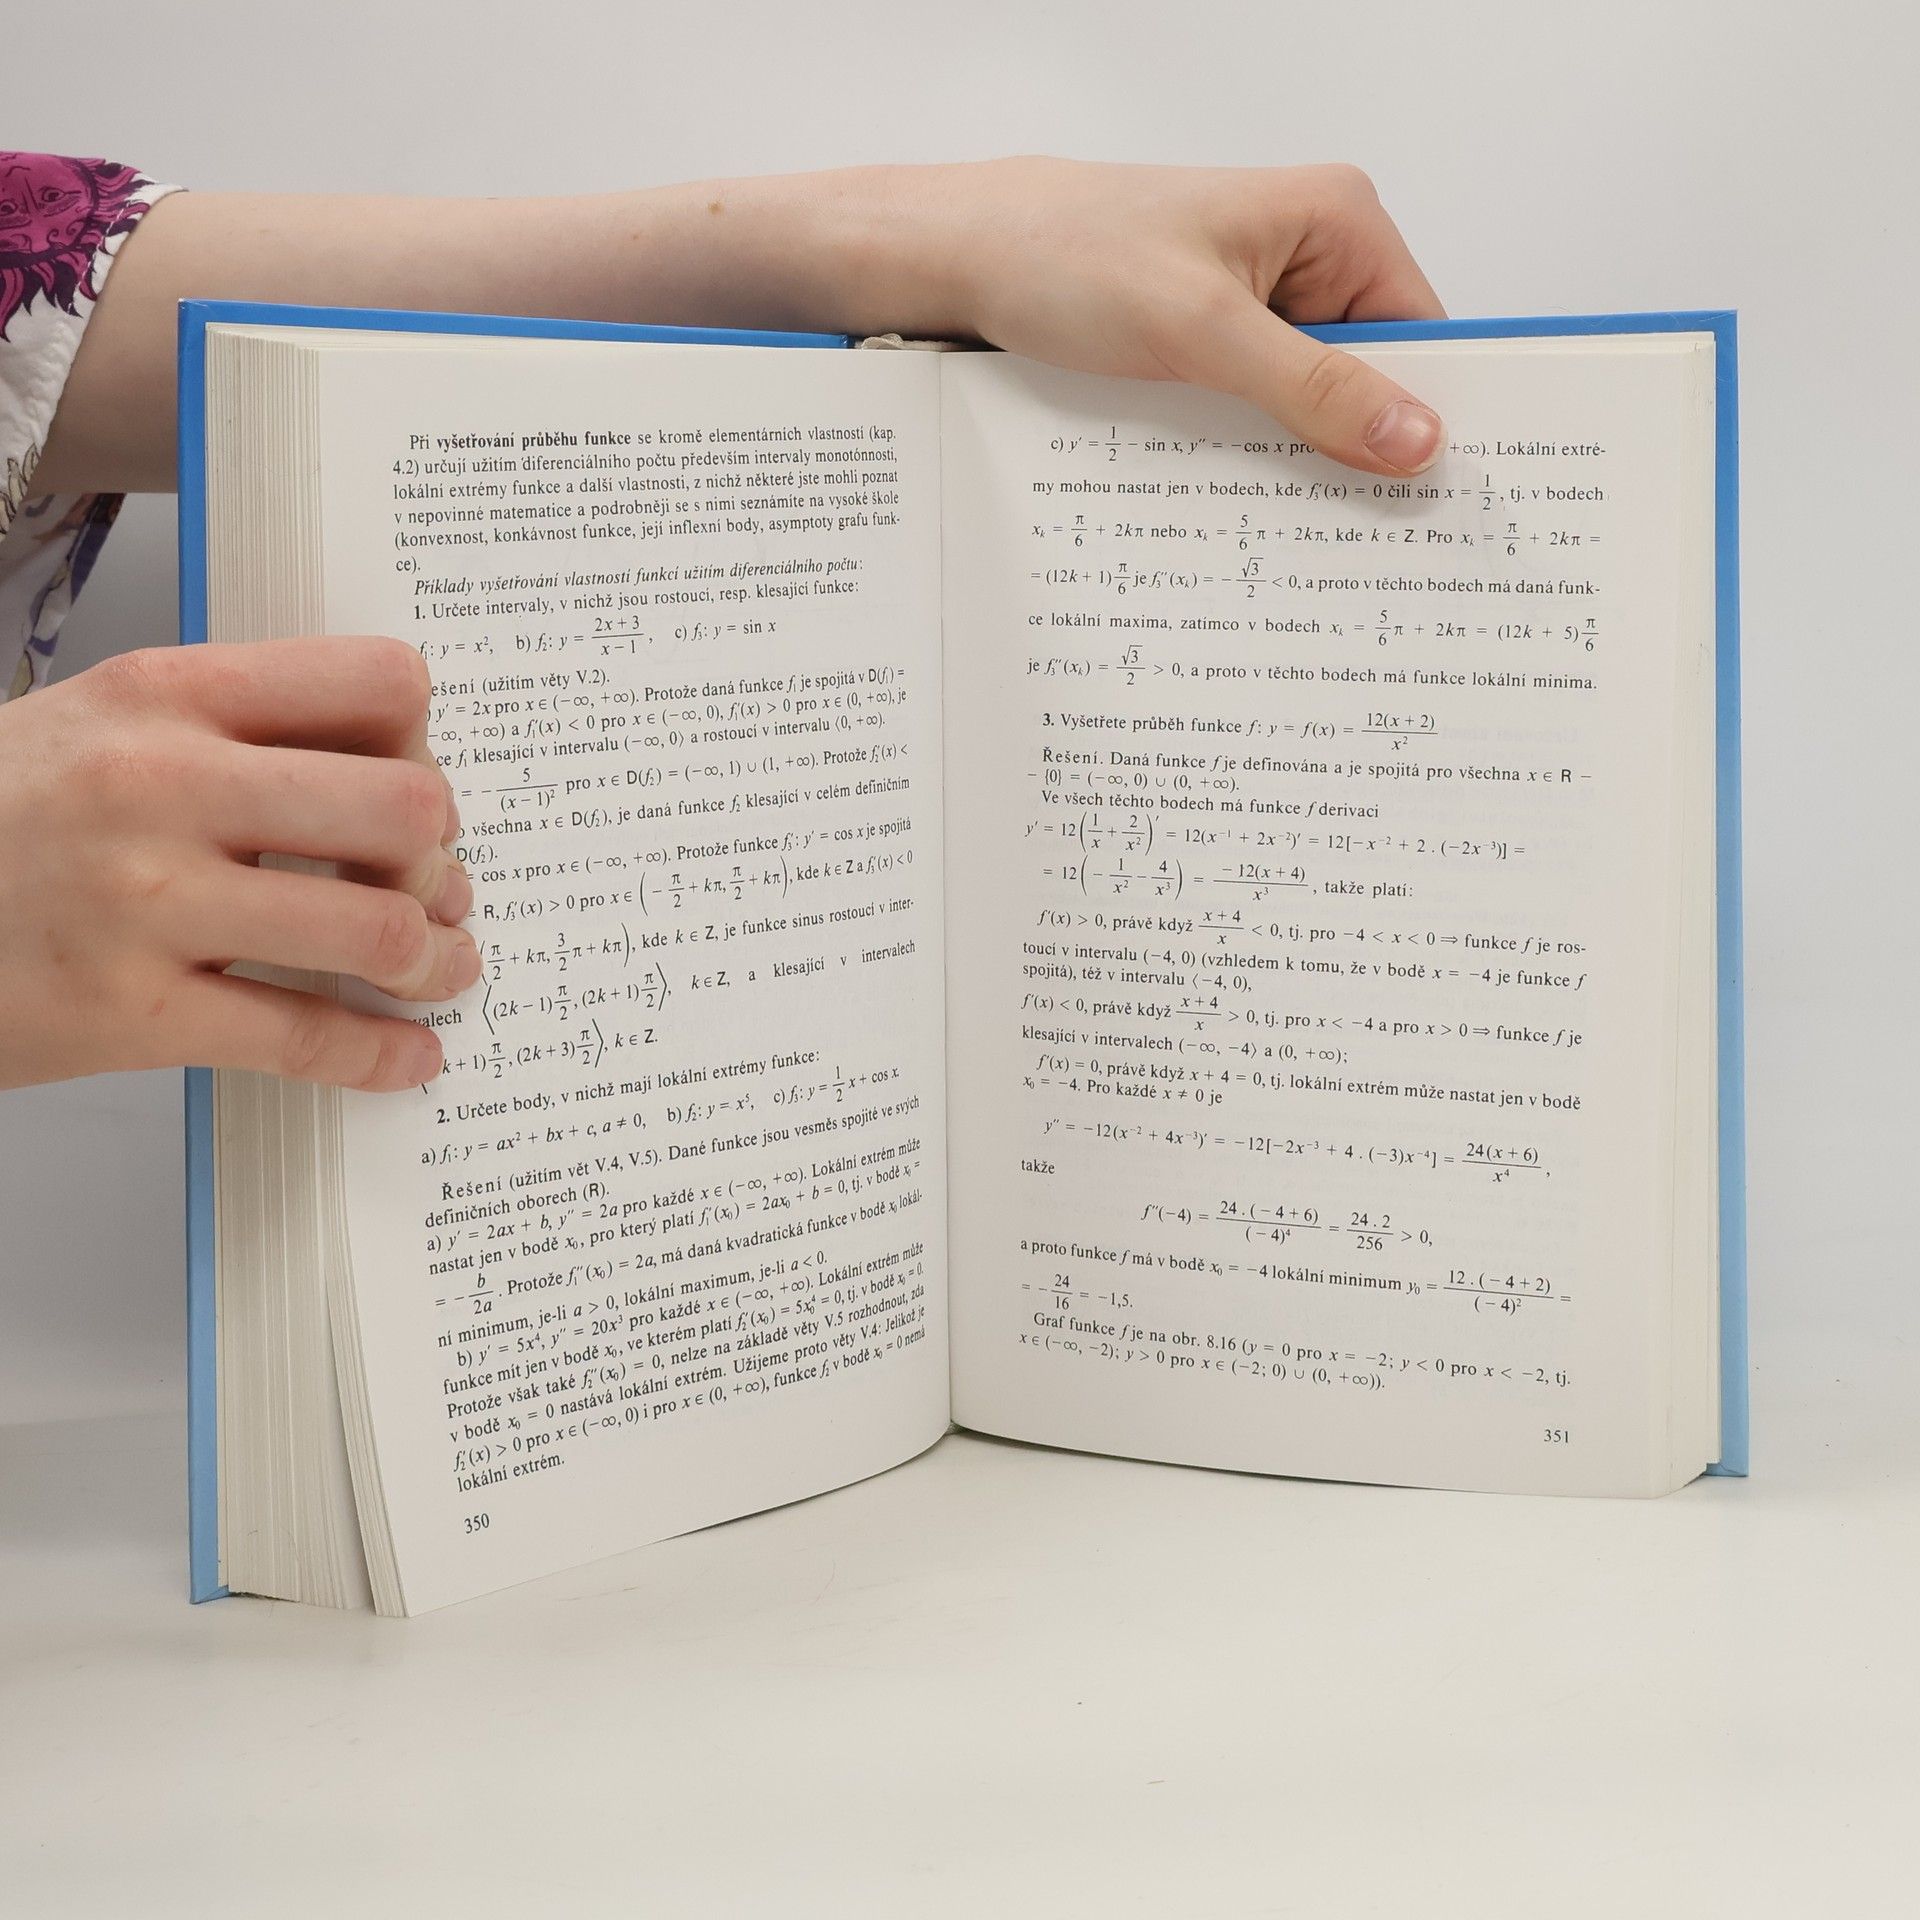 Při vyšetřování průběhu funkce se kromě elementárních vlastností (kap.
4.2) určují užitím diferenciálního počtu především intervaly monotónnosti,
lokální extrémy funkce a další vlastnosti, z nichž některé jste mohli poznat
v nepovinné matematice a podrobněji se s nimi seznámíte na vysoké škole
(konvexnost, konkávnost funkce, její inflexní body, asymptoty grafu funk-
ce).
Příklady vyšetřování vlastností funkcí užitím diferenciálního počtu:
1. Určete intervaly, v nichž jsou rostoucí, resp. klesající funkce:
f₁: y = x², b) f₂: y = (2x + 3)/(x − 1), c) f₃: y = sin x
ešení (užitím věty V.2).
) y′ = 2x pro x ∈ (−∞, +∞). Protože daná funkce f₁ je spojitá v D(f₁) =
−∞, +∞) a f₁′(x) < 0 pro x ∈ (−∞, 0), f₁′(x) > 0 pro x ∈ (0, +∞), je
ce f₁ klesající v intervalu (−∞, 0⟩ a rostoucí v intervalu ⟨0, +∞).
= −5/(x − 1)² pro x ∈ D(f₂) = (−∞, 1) ∪ (1, +∞). Protože f₂′(x) <
všechna x ∈ D(f₂), je daná funkce f₂ klesající v celém definičním
D(f₂).
= cos x pro x ∈ (−∞, +∞). Protože funkce f₃′: y′ = cos x je spojitá
= R, f₃′(x) > 0 pro x ∈ (−π/2 + kπ, π/2 + kπ), kde k ∈ Z a f₃′(x) < 0
(π/2 + kπ, 3/2 π + kπ), kde k ∈ Z, je funkce sinus rostoucí v inter-
valech ⟨(2k − 1)π/2, (2k + 1)π/2⟩, k ∈ Z, a klesající v intervalech
k + 1)π/2, (2k + 3)π/2⟩, k ∈ Z.
2. Určete body, v nichž mají lokální extrémy funkce:
a) f₁: y = ax² + bx + c, a ≠ 0, b) f₂: y = x⁵, c) f₃: y = 1/2 x + cos x
Řešení (užitím vět V.4, V.5). Dané funkce jsou vesměs spojité ve svých
definičních oborech (R).
a) y′ = 2ax + b, y″ = 2a pro každé x ∈ (−∞, +∞). Lokální extrém může
nastat jen v bodě x₀, pro který platí f₁′(x₀) = 2ax₀ + b = 0, tj. v bodě x₀ =
= −b/2a. Protože f₁″(x₀) = 2a, má daná kvadratická funkce v bodě x₀ lokál-
ní minimum, je-li a > 0, lokální maximum, je-li a < 0.
b) y′ = 5x⁴, y″ = 20x³ pro každé x ∈ (−∞, +∞). Lokální extrém může
funkce mít jen v bodě x₀, ve kterém platí f₂′(x₀) = 5x₀⁴ = 0, tj. v bodě x₀ = 0.
Protože však také f₂″(x₀) = 0, nelze na základě věty V.5 rozhodnout, zda
v bodě x₀ = 0 nastává lokální extrém. Užijeme proto věty V.4: Jelikož je
f₂′(x) > 0 pro x ∈ (−∞, 0) i pro x ∈ (0, +∞), funkce f₂ v bodě x₀ = 0 nemá
lokální extrém.
350
c) y′ = 1/2 − sin x, y″ = −cos x pro +∞). Lokální extré-
my mohou nastat jen v bodech, kde f₃′(x) = 0 čili sin x = 1/2, tj. v bodech
xₖ = π/6 + 2kπ nebo xₖ = 5/6 π + 2kπ, kde k ∈ Z. Pro xₖ = π/6 + 2kπ =
= (12k + 1)π/6 je f₃″(xₖ) = −√3/2 < 0, a proto v těchto bodech má daná funk-
ce lokální maxima, zatímco v bodech xₖ = 5/6 π + 2kπ = (12k + 5)π/6
je f₃″(xₖ) = √3/2 > 0, a proto v těchto bodech má funkce lokální minima.
3. Vyšetřete průběh funkce f: y = f(x) = 12(x + 2)/x²
Řešení. Daná funkce f je definována a je spojitá pro všechna x ∈ R −
− {0} = (−∞, 0) ∪ (0, +∞).
Ve všech těchto bodech má funkce f derivaci
y′ = 12(1/x + 2/x²)′ = 12(x⁻¹ + 2x⁻²)′ = 12[−x⁻² + 2 . (−2x⁻³)] =
= 12(−1/x² − 4/x³) = −12(x + 4)/x³, takže platí:
f′(x) > 0, právě když (x + 4)/x < 0, tj. pro −4 < x < 0 ⇒ funkce f je ros-
toucí v intervalu (−4, 0) (vzhledem k tomu, že v bodě x = −4 je funkce f
spojitá), též v intervalu ⟨−4, 0),
f′(x) < 0, právě když (x + 4)/x > 0, tj. pro x < −4 a pro x > 0 ⇒ funkce f je
klesající v intervalech (−∞, −4⟩ a (0, +∞);
f′(x) = 0, právě když x + 4 = 0, tj. lokální extrém může nastat jen v bodě
x₀ = −4. Pro každé x ≠ 0 je
y″ = −12(x⁻² + 4x⁻³)′ = −12[−2x⁻³ + 4 . (−3)x⁻⁴] = 24(x + 6)/x⁴,
takže
f″(−4) = 24 . (−4 + 6)/(−4)⁴ = 24 . 2/256 > 0,
a proto funkce f má v bodě x₀ = −4 lokální minimum y₀ = 12 . (−4 + 2)/(−4)² =
= −24/16 = −1,5.
Graf funkce f je na obr. 8.16 (y = 0 pro x = −2; y < 0 pro x < −2, tj.
x ∈ (−∞, −2); y > 0 pro x ∈ (−2; 0) ∪ (0, +∞)).
351